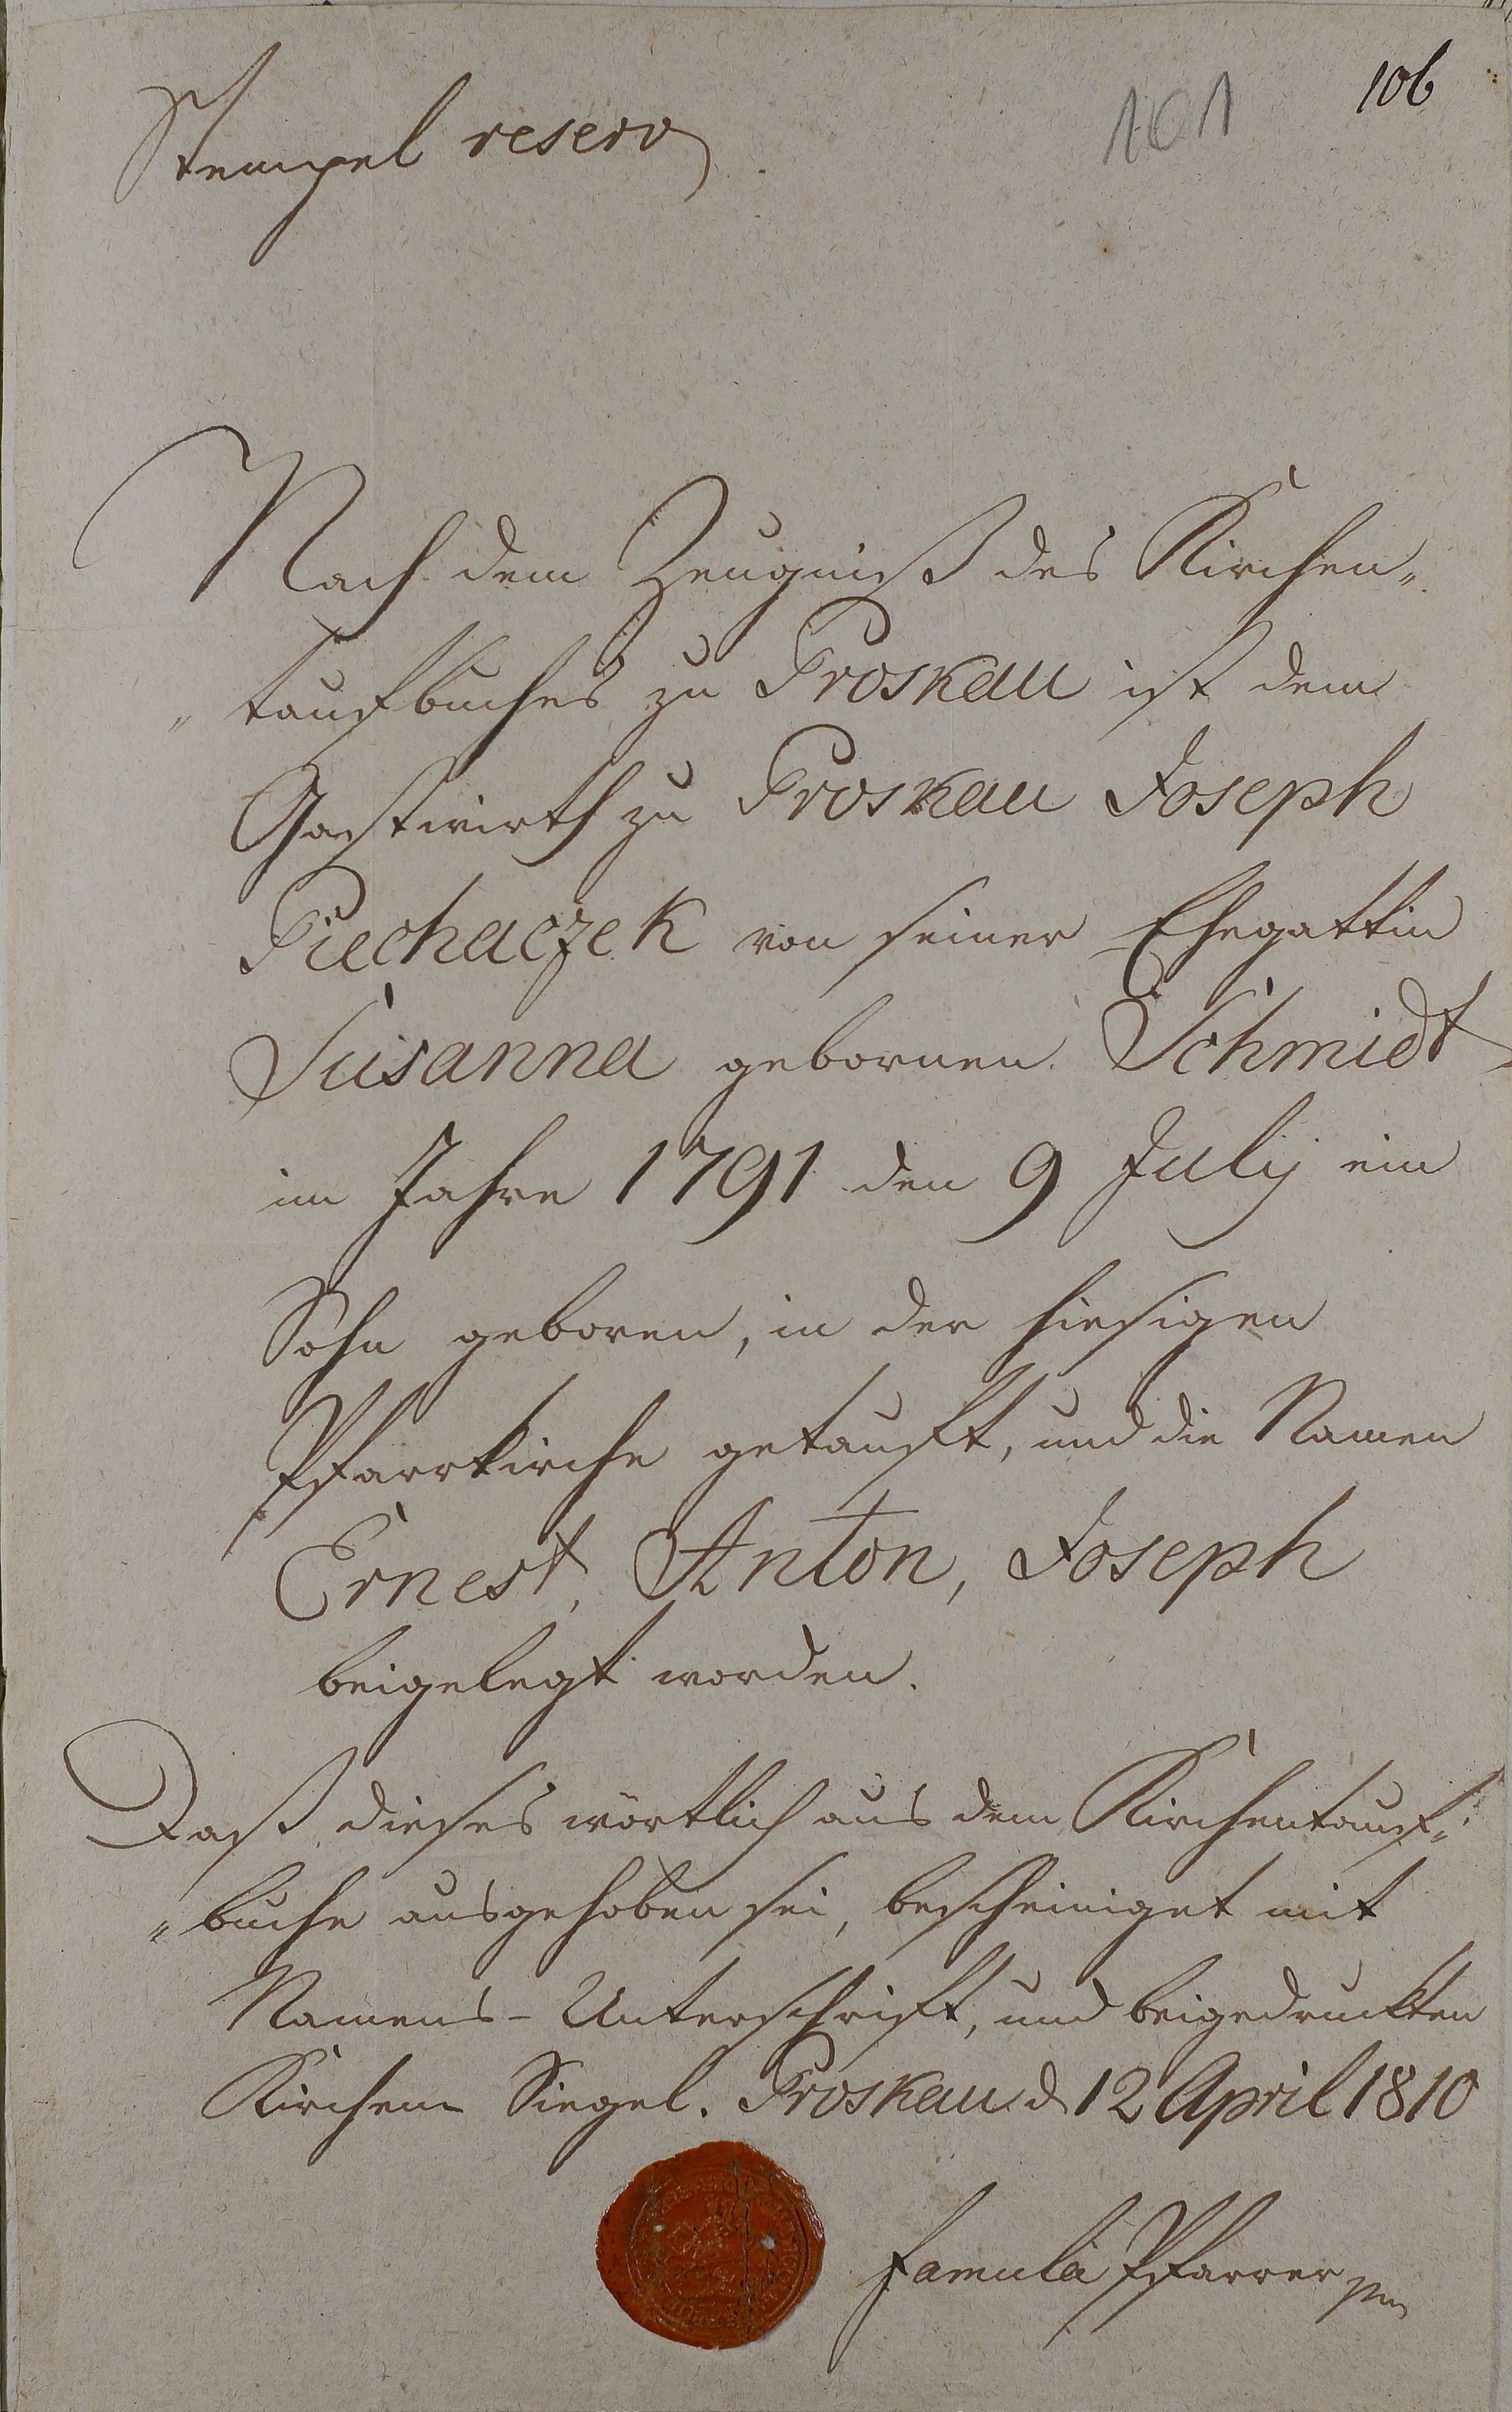 106
101
Stempel reserv
Nach dem Zeugniß des Kirchen„
„taufbuches zu Proskau ist dem
Gastwirth zu Proskau Joseph
Piechaczek von seiner Ehegattin
Susanna gebornen Schmidt
im Jahre 1791 den 9 Julij ein
Sohn geboren, in der hiesigen
Pfarrkirche getauft, und die Namen
Ernest, Anton, Joseph
beigelegt worden.
Daß dieses wörtlich aus dem Kirchentauf„
„buche ausgehoben sei, bescheiniget mit
Namens-Unterschrift, und beigedruckten
Kirchen Siegel. Proskau d 12 April 1810
Famula Pfarrer